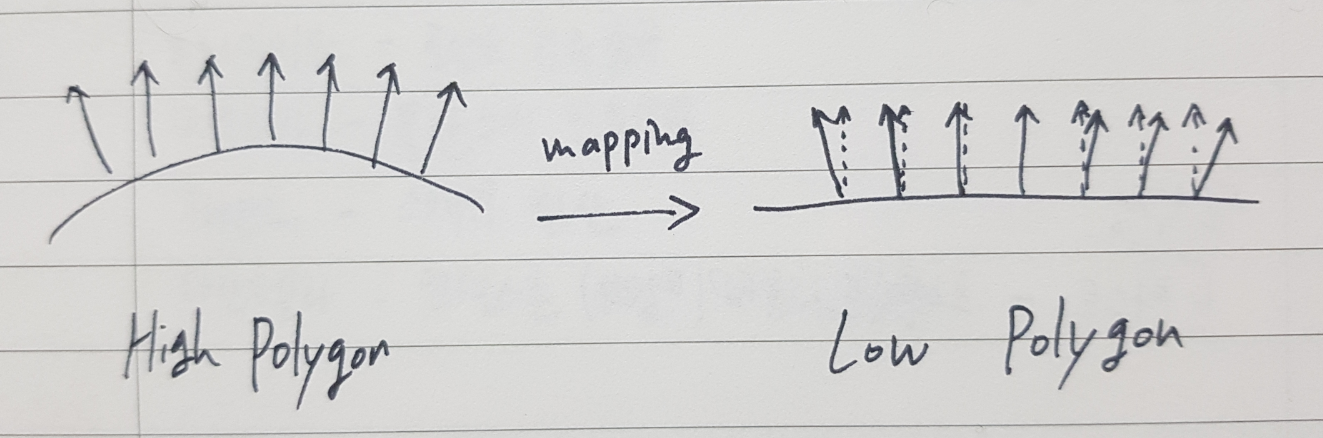 mapping
High Polygon
Low Polygon